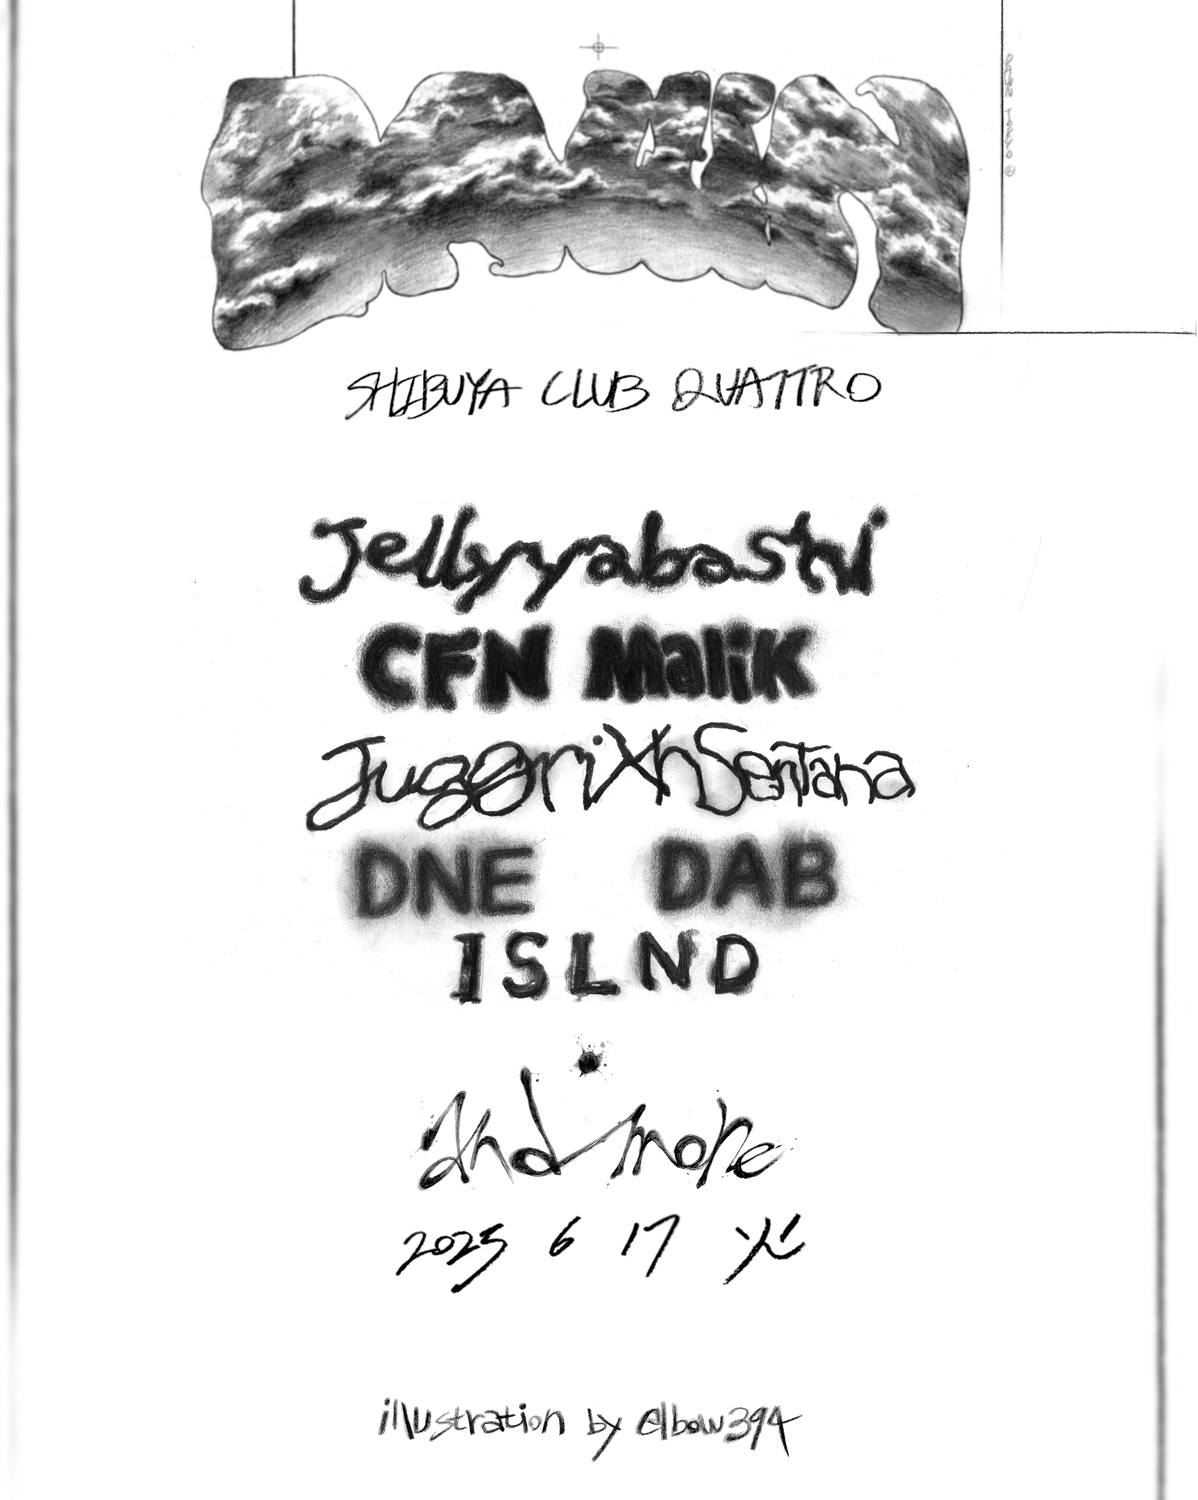 SHIBUYA CLUB QUATTRO
Jellyyabashi
CFN Malik
JuggrixhSentana
DNE DAB
ISLND
and more
2025 6 17 火
illustration by elbow394